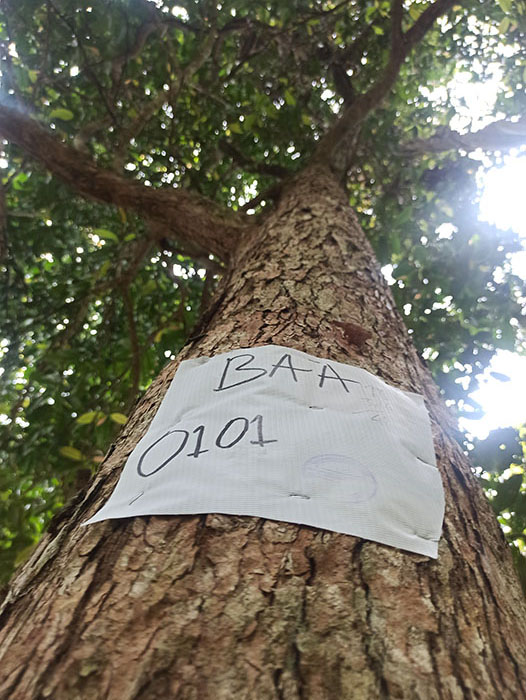 BAA
0101